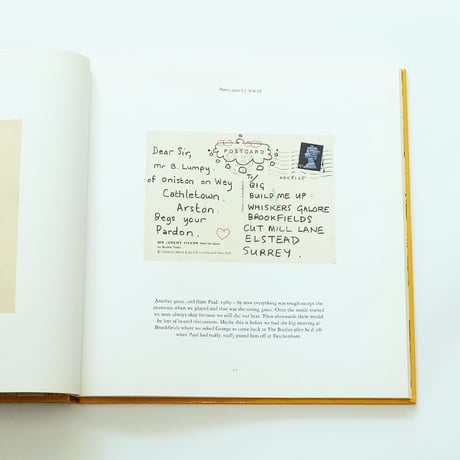 POSTCARD
Dear Sir,
mr B. Lumpy.
of Oniston on Wey
Cathletown.
Arston.
Begs your
Pardon.
MR. JEREMY FISHER
by Beatrix Potter
BIG
BUILD ME UP
WHISKERS GALORE
BROOKFIELDS
CUT MILL LANE
ELSTEAD
SURREY.
Another great card from Paul, 1969 – by now everything was tough except the
moments when we played and that was the saving grace. Once the music started
we were always okay because we still did our best. Then afterwards there would
be lots of heated discussions. Maybe this is before we had the big meeting at
Brookfields where we asked George to come back to The Beatles after he'd left
when Paul had really, really pissed him off at Twickenham.